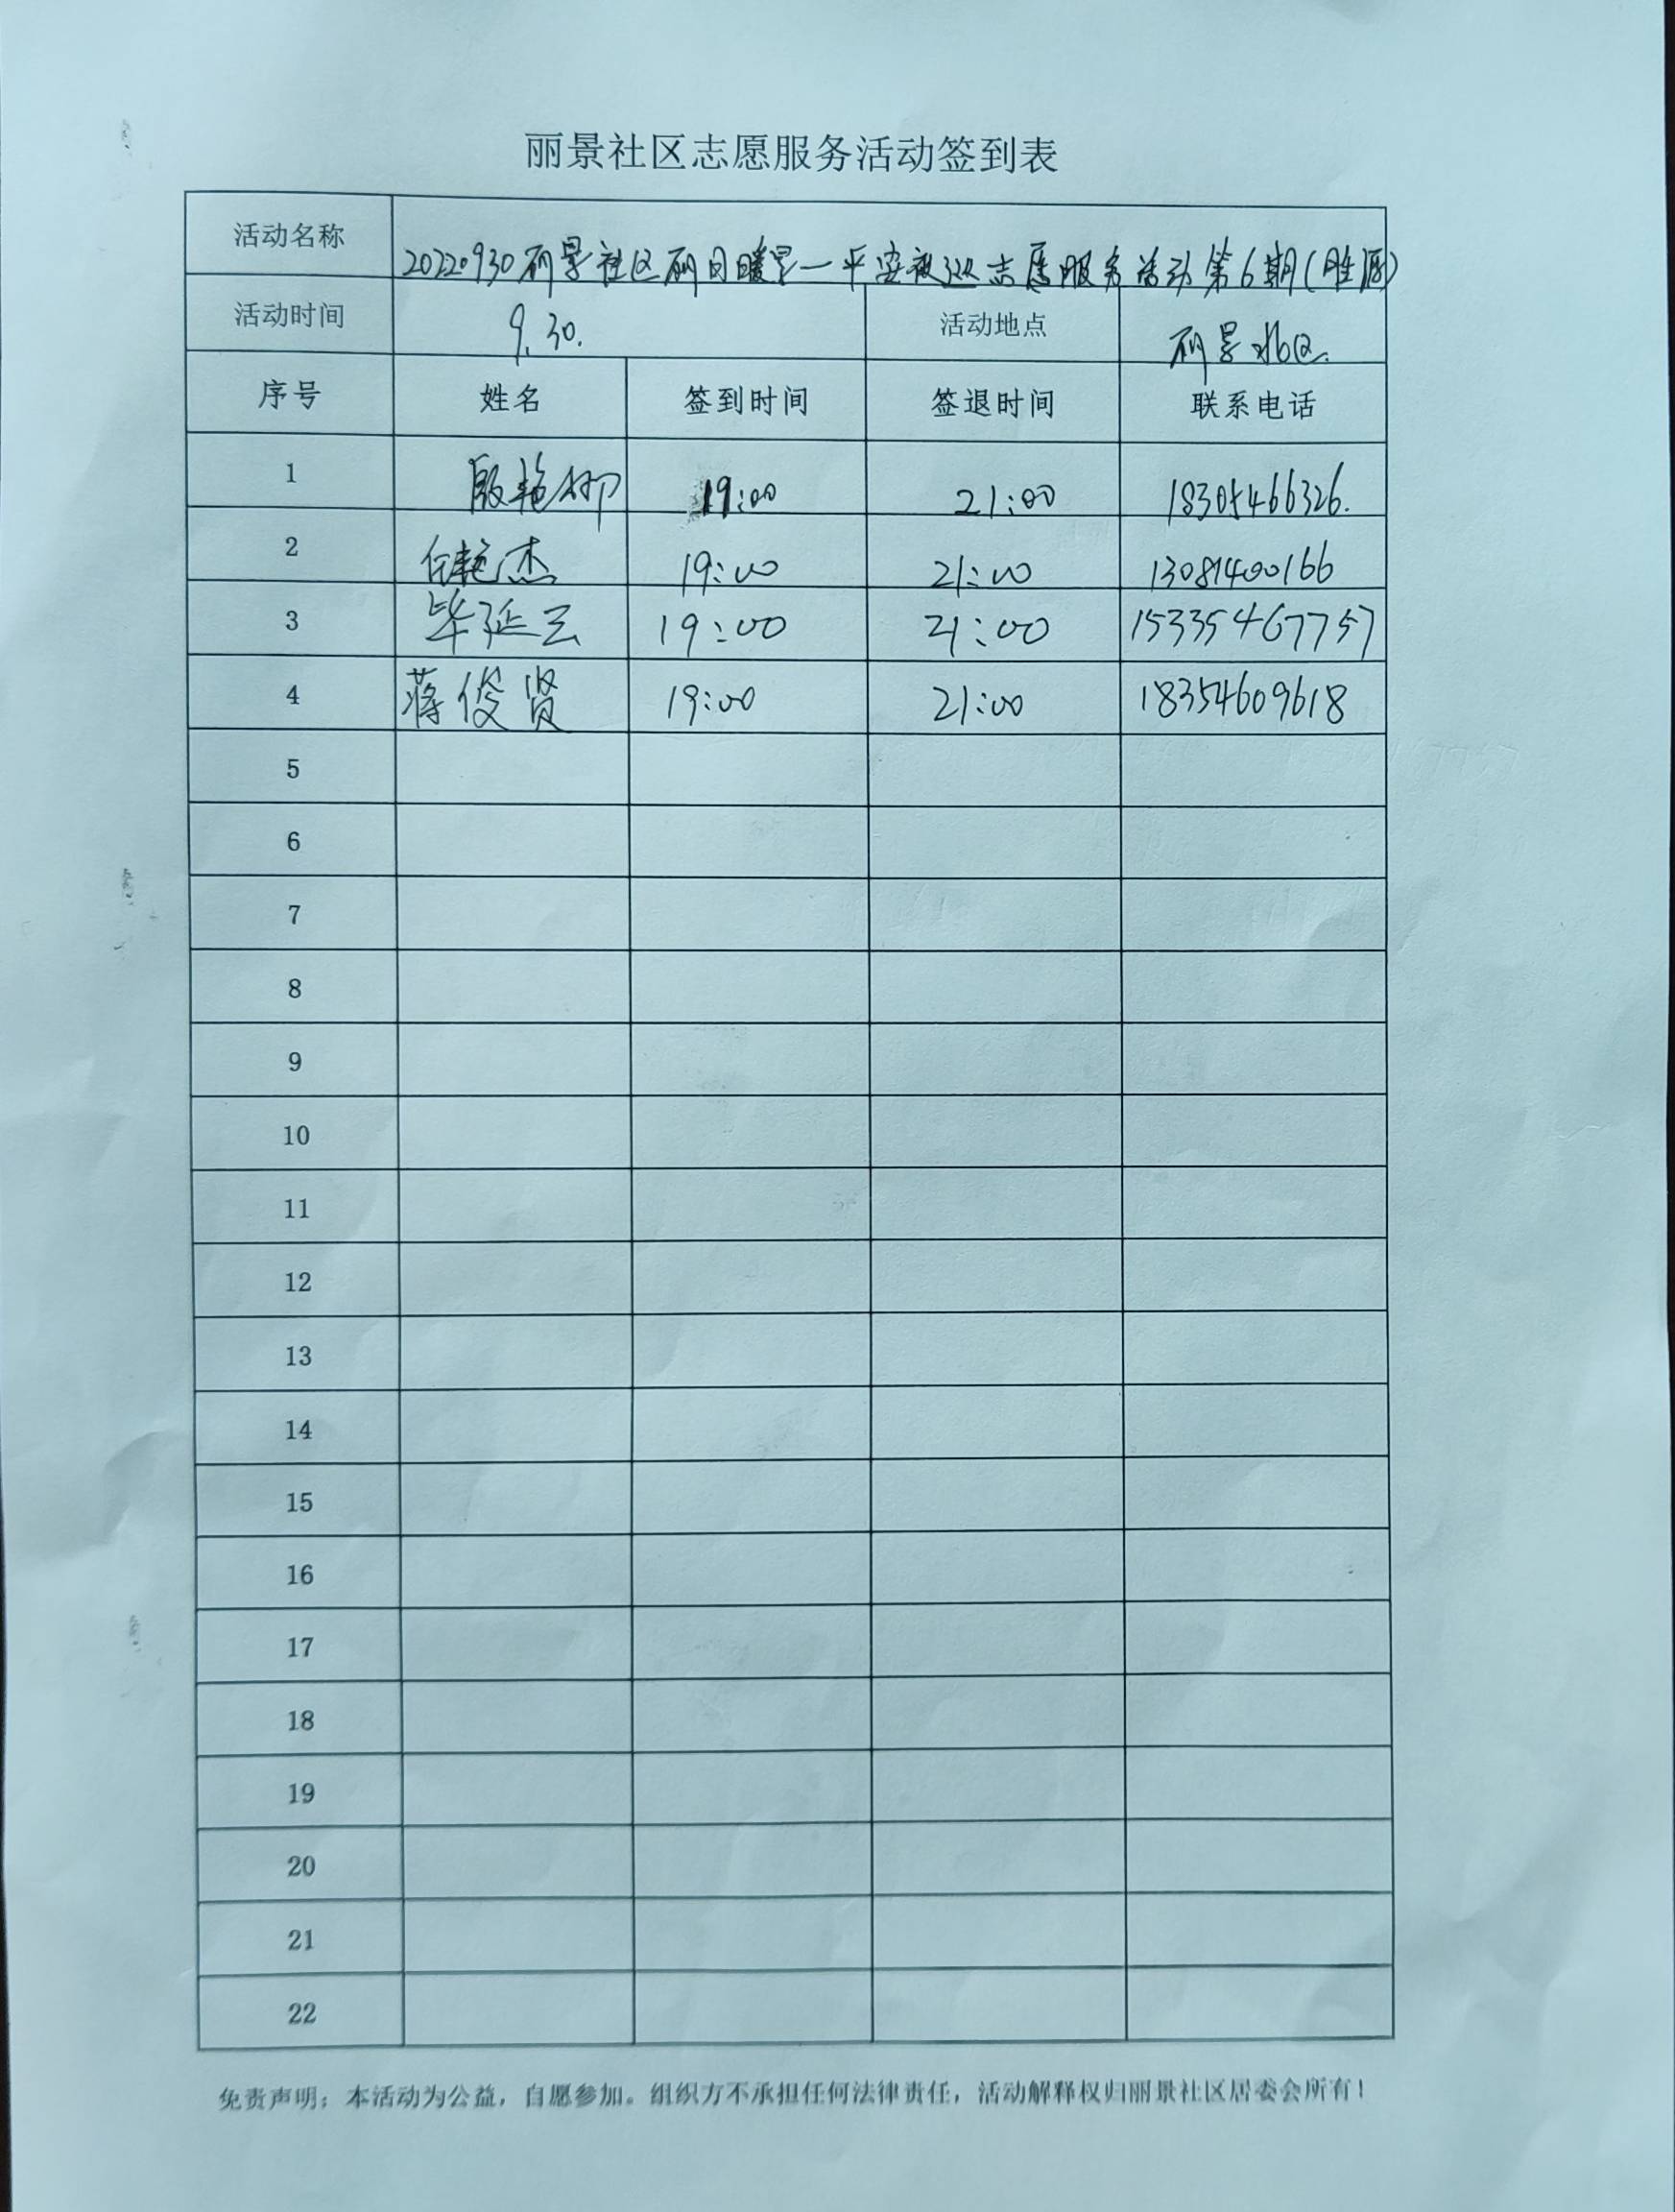 丽景社区志愿服务活动签到表
活动名称 20220930丽景社区丽日暖景一平安夜巡志愿服务活动第6期(胜源)
活动时间 9.30. 活动地点 丽景北区.
序号 姓名 签到时间 签退时间 联系电话
1 殷艳柳 19:00 21:00 18305466326.
2 艳杰 19:00 21:00 13081400166
3 毕延云 19:00 21:00 15335467757
4 蒋俊贤 19:00 21:00 18354609618
5
6
7
8
9
10
11
12
13
14
15
16
17
18
19
20
21
22
免责声明：本活动为公益，自愿参加。组织方不承担任何法律责任，活动解释权归丽景社区居委会所有！